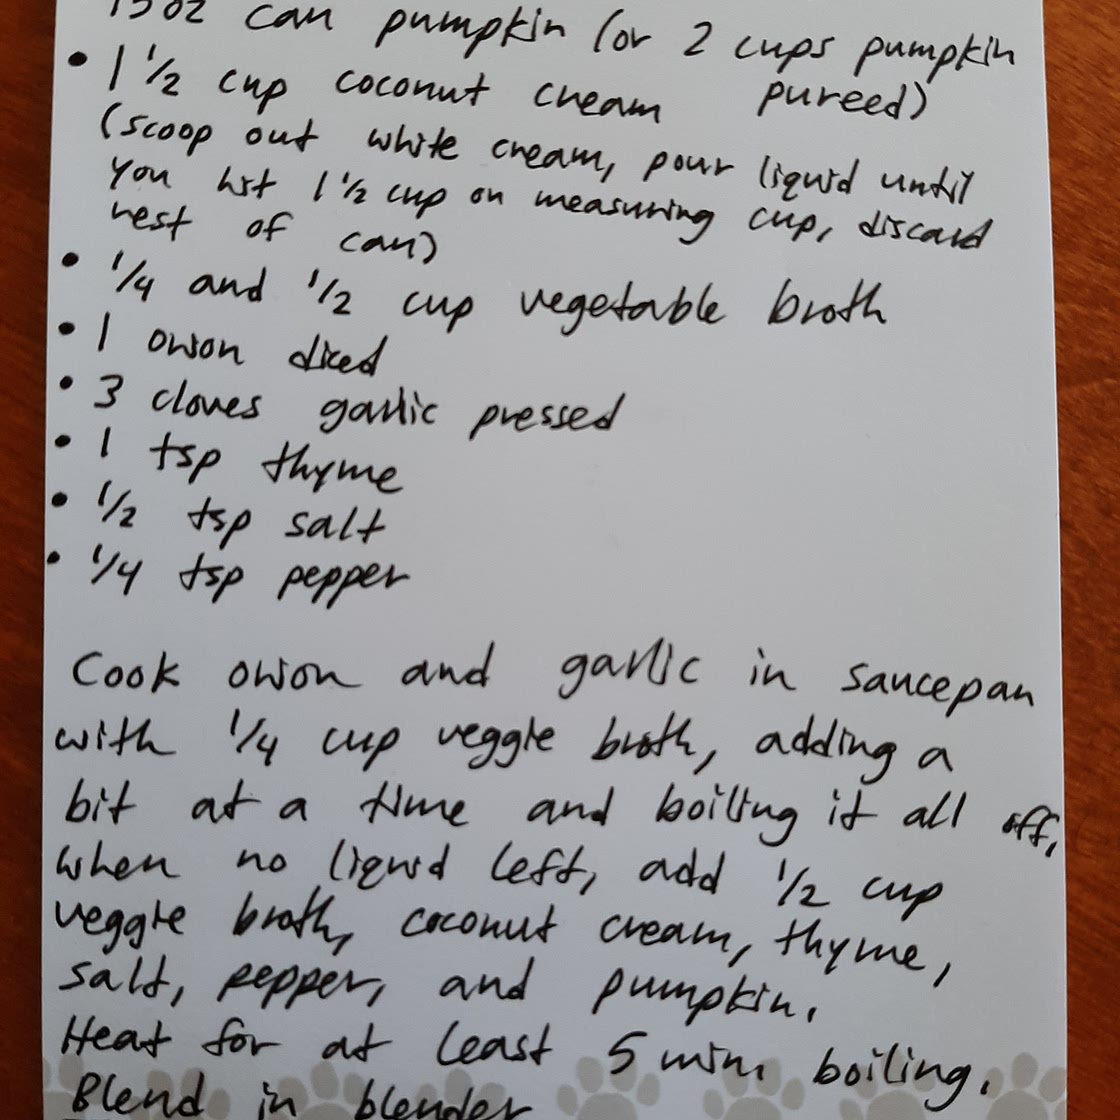 15oz can pumpkin (or 2 cups pumpkin
pureed)
• 1 1/2 cup coconut cream
(scoop out white cream, pour liquid until
you hit 1 1/2 cup on measuring cup, discard
rest of can)
• 1/4 and 1/2 cup vegetable broth
• 1 onion diced
• 3 cloves garlic pressed
• 1 tsp thyme
• 1/2 tsp salt
• 1/4 tsp pepper
Cook onion and garlic in saucepan
with 1/4 cup veggie broth, adding a
bit at a time and boiling it all off,
when no liquid left, add 1/2 cup
veggie broth, coconut cream, thyme,
salt, pepper, and pumpkin.
Heat for at least 5 min. boiling.
Blend in blender